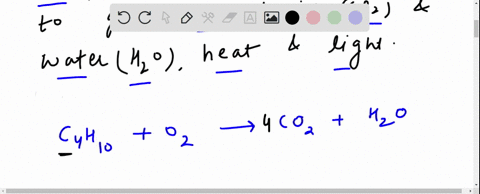 to
2) &
water (H₂O), heat & light.
C₄H₁₀ + O₂ ⟶ 4CO₂ + H₂O